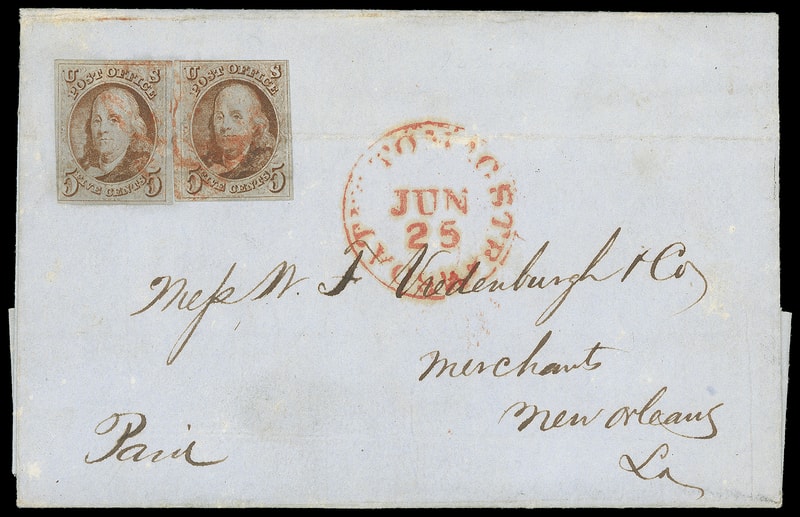 U S
POST OFFICE
FIVE CENTS
5 5
U S
POST OFFICE
FIVE CENTS
5 5
JUN
25
Mess W. F Vredenburgh & Co
Merchants
New Orleans
La
Paid